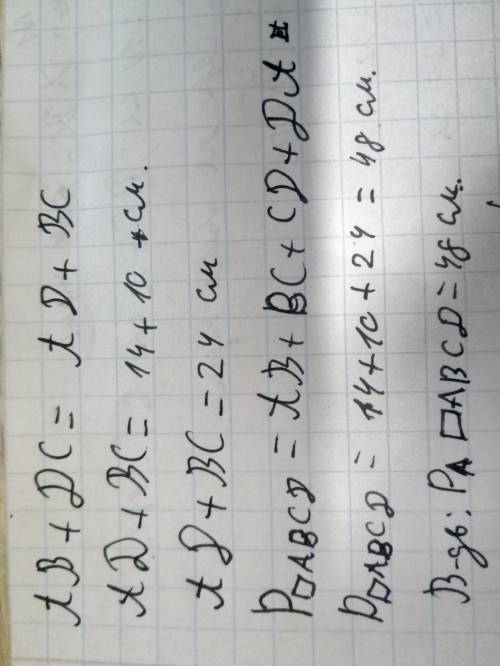 AB + DC = AD + BC
AD + BC = 14 + 10 см.
AD + BC = 24 см
P□ABCD = AB + BC + CD + DA
P□ABCD = 14 + 10 + 24 = 48 см.
В-дь: P□ABCD = 48 см.